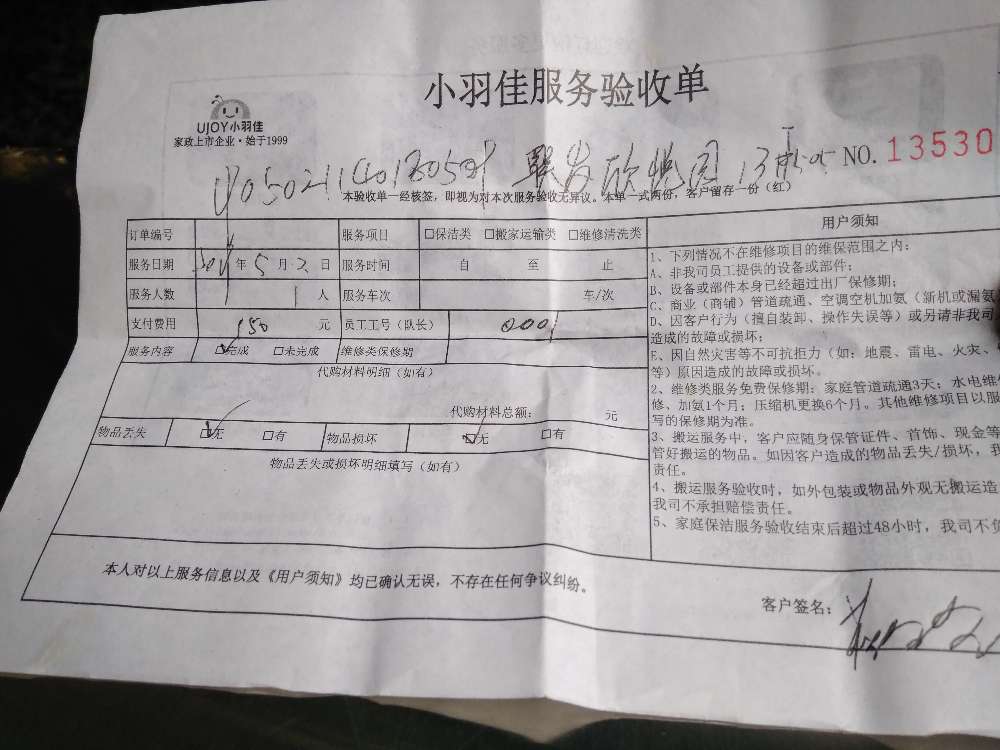 小羽佳服务验收单
UJOY小羽佳
家政上市企业·始于1999
NO.13530
本验收单一经核签，即视为对本次服务验收无异议。本单一式两份，客户留存一份（红）
订单编号 服务项目 □保洁类 □搬家运输类 □维修清洗类
服务日期 年5月2日 服务时间 自 至 止
服务人数 1人 服务车次 车/次
支付费用 150元 员工工号（队长） 0001
服务内容 ☑完成 □未完成 维修类保修期
代购材料明细（如有）
代购材料总额： 元
物品丢失 ☑无 □有 物品损坏 ☑无 □有
物品丢失或损坏明细填写（如有）
用户须知
1、下列情况不在维修项目的维保范围之内：
A、非我司员工提供的设备或部件；
B、设备或部件本身已经超过出厂保修期；
C、商业（商铺）管道疏通、空调空机加氨（新机或漏氨
D、因客户行为（擅自装卸、操作失误等）或另请非我司
造成的故障或损坏；
E、因自然灾害等不可抗拒力（如：地震、雷电、火灾、
等）原因造成的故障或损坏。
2、维修类服务免费保修期：家庭管道疏通3天；水电维
修、加氨1个月；压缩机更换6个月。其他维修项目以服
写的保修期为准。
3、搬运服务中，客户应随身保管证件、首饰、现金等
管好搬运的物品。如因客户造成的物品丢失/损坏，我
责任。
4、搬运服务验收时，如外包装或物品外观无搬运造
我司不承担赔偿责任。
5、家庭保洁服务验收结束后超过48小时，我司不
本人对以上服务信息以及《用户须知》均已确认无误，不存在任何争议纠纷。
客户签名：